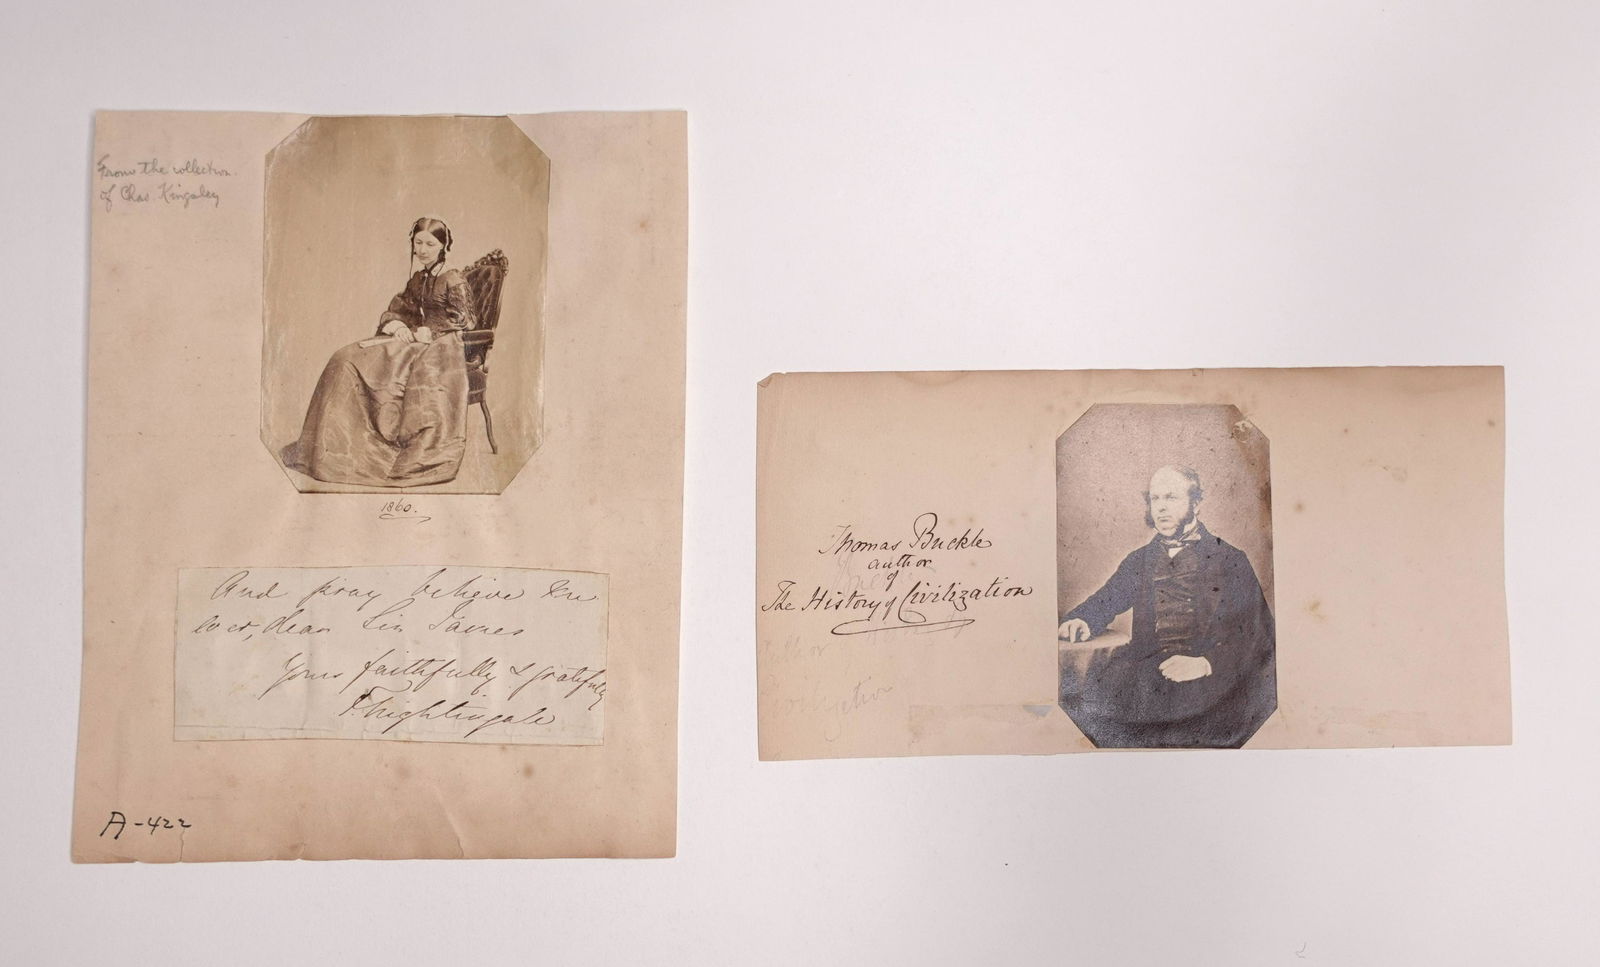 From the collection
of Chas Kingsley
1860.
And pray believe me
ever, dear Sir James
Yours faithfully & gratefully
F. Nightingale
A-422
Thomas Buckle
author
of
The History of Civilization